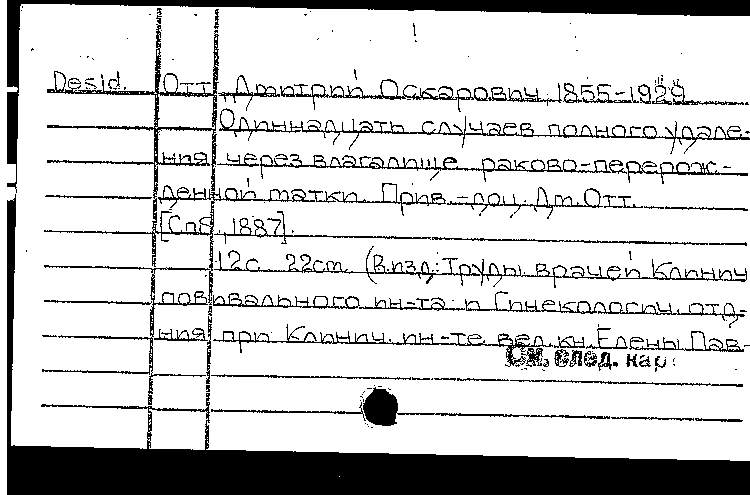 Desid. Отт, Дмитрий Оскарович, 1855-1929
Одиннадцать случаев полного удале-
ния через влагалище раково-перерож-
денной матки. Прив.-доц. Дм. Отт.
[Спб., 1887].
12с. 22cm. (В изд.: Труды врачей Клинич
повивального ин-та и Гинекологич. отд-
ния при Клинич. ин-те вел. кн. Елены Пав-
См. след. кар